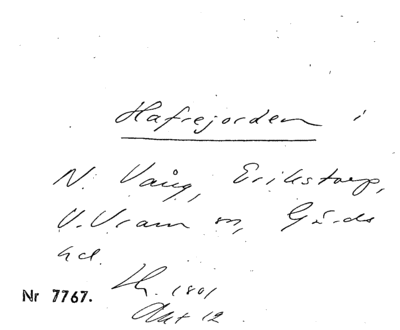 Hafrejorden i
N. Vång, Erikstorp,
V. Vram m, Gärds
hd.
Nr 7767. Lk. 1801
Akt 12